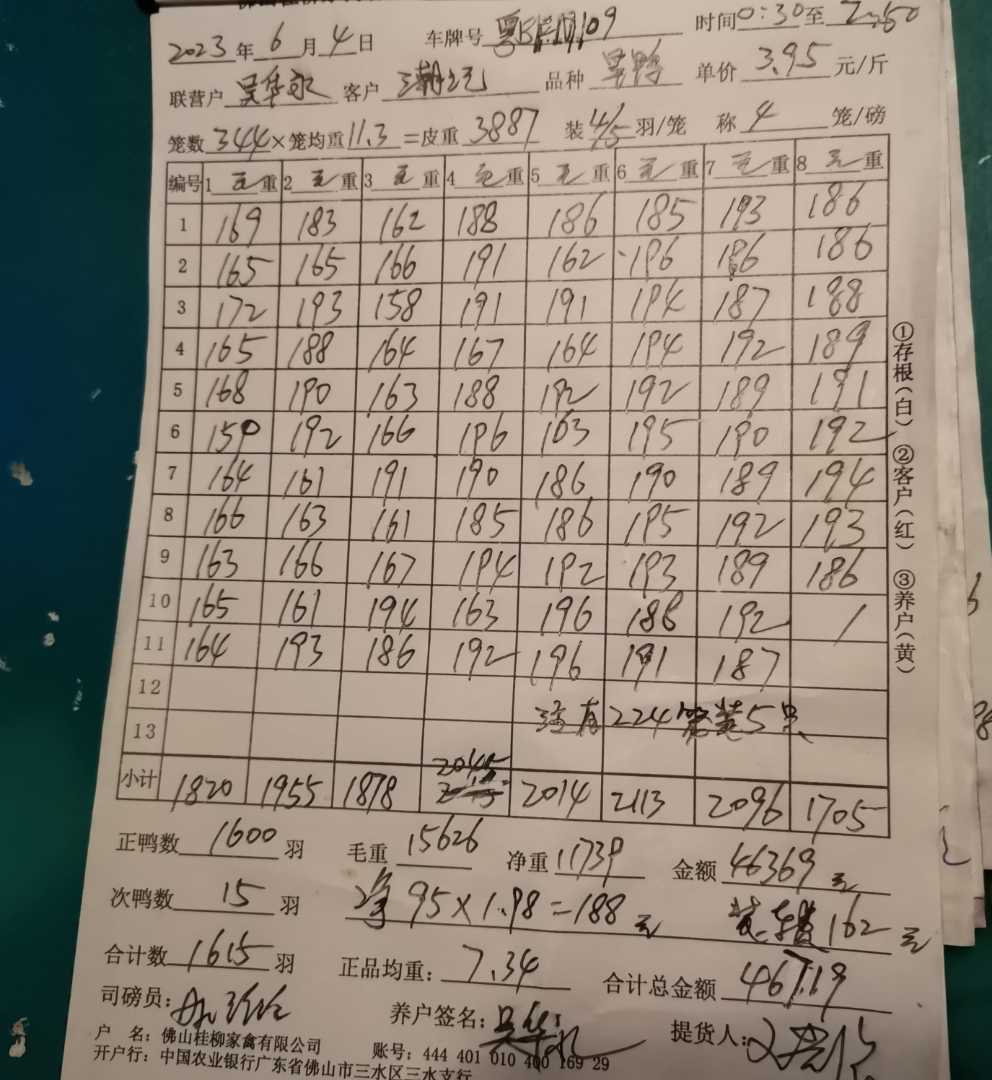 2023年6月4日 车牌号 109 时间0:30至2:50
联营户 吴华永 客户 品种 单价 3.95 元/斤
笼数 344 ×笼均重 11.3 =皮重 3887 装 4/5 羽/笼 称 4 笼/磅
编号 1 毛重 2 毛重 3 毛重 4 毛重 5 毛重 6 毛重 7 毛重 8 毛重
1 169 183 162 188 186 185 193 186
2 165 165 166 191 162 196 186 186
3 172 193 158 191 191 194 187 188
4 165 188 164 167 164 194 192 189
5 168 190 163 188 192 192 189 191
6 159 192 166 196 163 195 190 192
7 164 161 191 190 186 190 189 194
8 166 163 161 185 186 195 192 193
9 163 166 167 194 192 193 189 186
10 165 161 194 163 196 188 192 /
11 164 193 186 192 196 191 187
12 有224笼装5只
13
小计 1820 1955 1878 2045 2014 2113 2096 1705
①存根(白) ②客户(红) ③养户(黄)
正鸭数 1600 羽 毛重 15626 净重 11739 金额 46369 元
次鸭数 15 羽 净 95×1.98=188元 装车费162元
合计数 1615 羽 正品均重: 7.34 合计总金额 46719
司磅员: 养户签名: 吴华永 提货人:
户 名: 佛山桂柳家禽有限公司 账号: 444 401 010 400 169 29
开户行: 中国农业银行广东省佛山市三水区三水支行